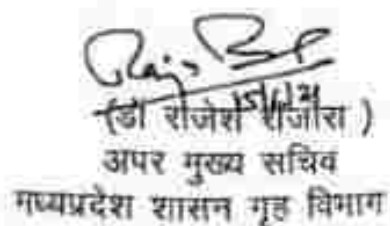 (डॉ राजेश राजौरा )
अपर मुख्य सचिव
मध्यप्रदेश शासन गृह विभाग